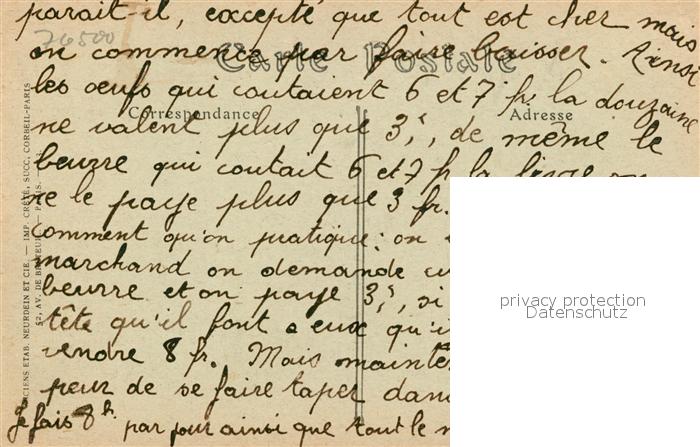 parait-il, excepté que tout est cher mais
on commence par faire baisser. Ainsi
76500
Carte Postale
les oeufs qui coutaient 6 et 7 fr. la douzaine
Correspondance
Adresse
ne valent plus que 3,5, de même le
beurre qui coutait 6 et 7 fr la livre
ne le paye plus que 3 fr.
comment qu'on pratique: on
marchand on demande
beurre et on paye 3,5, si
tête qu'il font a eux qu'i
vendre 8 fr. Mais mainte
peur de se faire taper dan
Je fais 8h par jour ainsi que tout le
ANCIENS ETAB. NEURDEIN ET CIE. — IMP. CRÉTÉ, SUCC, CORBEIL-PARIS
52, AV. DE BRETEUIL — PARIS
privacy protection
Datenschutz